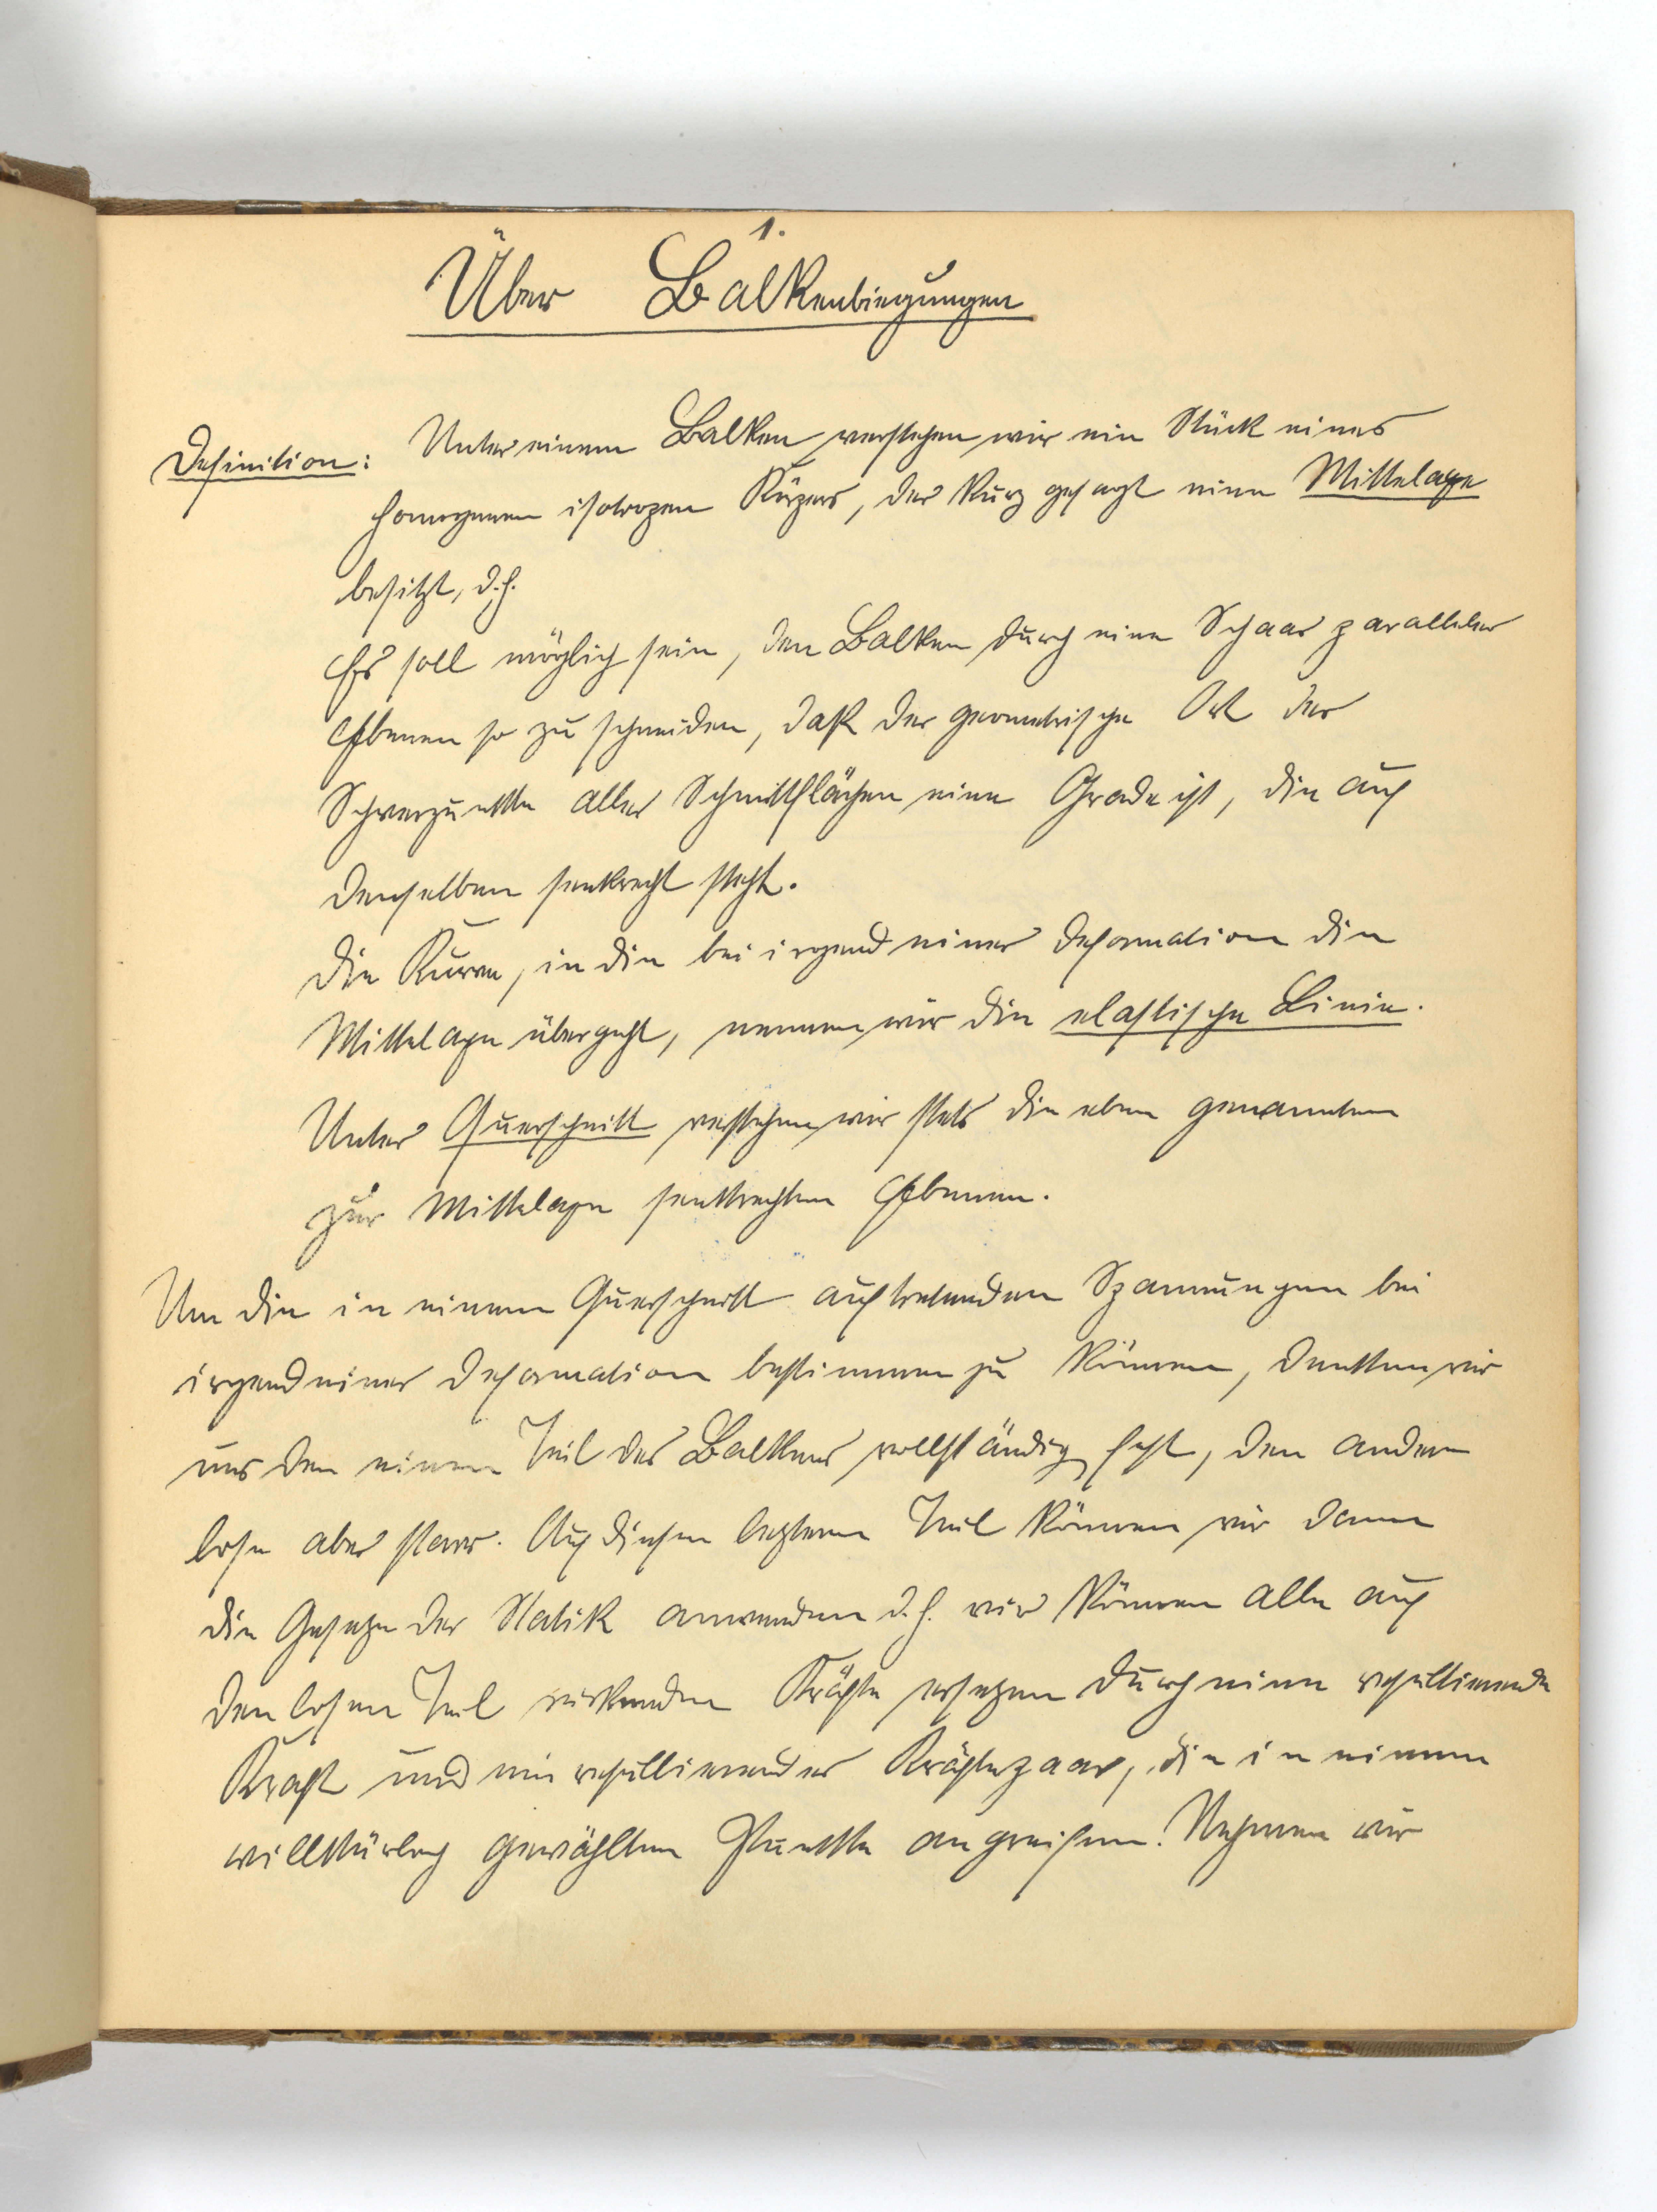 1.
Über Balkenbiegungen
Definition: Unter einem Balken verstehen wir ein Stück eines
homogenen isotropen Körpers, der kurz gesagt eine Mittelaxe
besitzt, d.h.
Es soll möglich sein, den Balken durch eine Schaar paralleler
Ebenen so zu schneiden, daß der geometrische Ort der
Schwerpunkte aller Schnittflächen eine Grade ist, die auf
denselben senkrecht steht.
Die Kurve, in die bei irgend einer Deformation die
Mittelaxe übergeht, nennen wir die elastische Linie.
Unter Querschnitt verstehen wir stets die eben genannten
zur Mittelaxe senkrechten Ebenen.
Um die in einem Querschnitt auftretenden Spannungen bei
irgendeiner Deformation bestimmen zu können, denken wir
uns den einen Teil des Balkens vollständig fest, den andern
lose aber starr. Auf diesen lezteren Teil können wir dann
die Geseze der Statik anwenden d.h. wir können alle auf
den losen Teil wirkenden Kräfte ersezen durch eine resultierende
Kraft und ein resultierendes Kräftepaar, die in einem
willkürlich gewählten Punkte angreifen. Nehmen wir